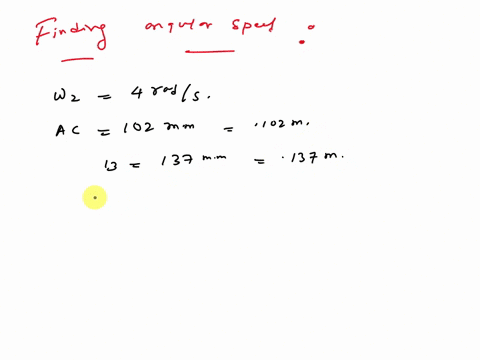 Finding angular speed :
ω2 = 4 rad/s.
AC = 102 mm = .102 m.
13 = 137 mm = .137 m.